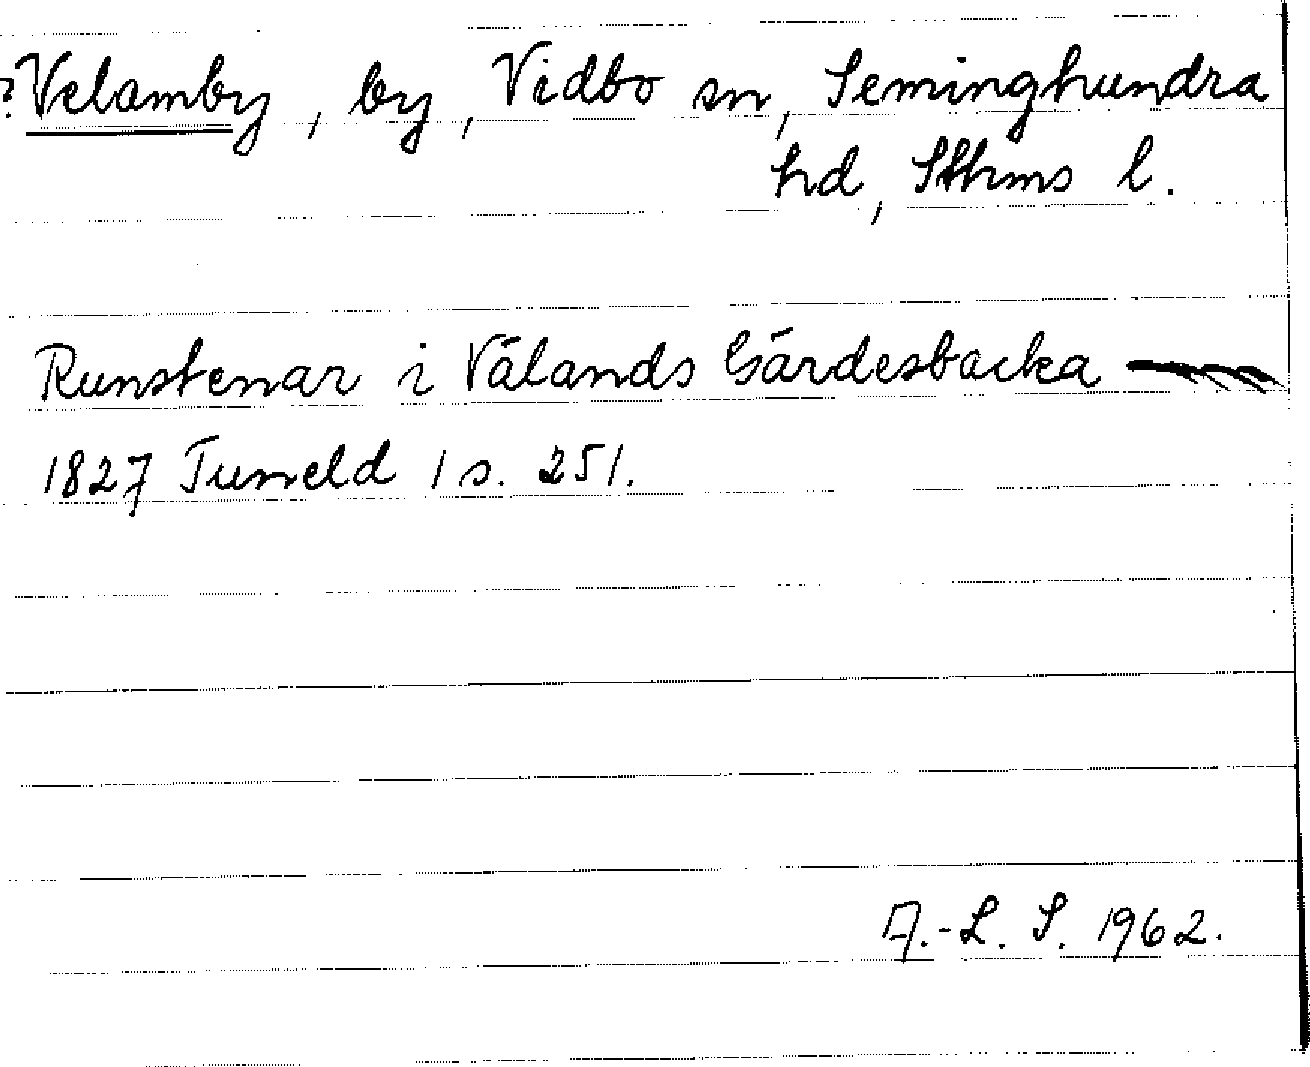 ?Velamby, by, Vidbo sn, Seminghundra
hd, Sthms l.
Runstenar i Välands Gärdesbacka
1827 Tuneld 1 s. 251.
A.-L. S. 1962.